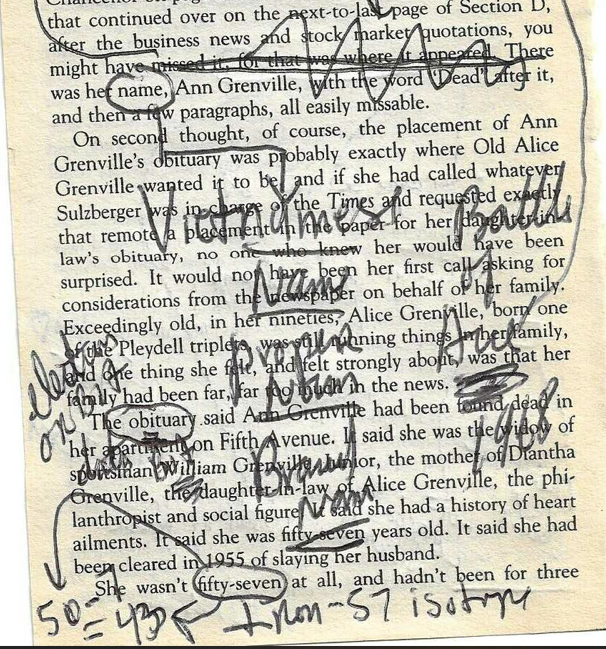 that continued over on the next-to-last page of Section D,
after the business news and stock market quotations, you
might have missed it, for that was where it appeared. There
was her name, Ann Grenville, with the word 'Dead' after it,
and then a few paragraphs, all easily missable.
On second thought, of course, the placement of Ann
Grenville's obituary was probably exactly where Old Alice
Grenville wanted it to be, and if she had called whatever
Sulzberger was in charge of the Times and requested exactly
that remote a placement in the paper for her daughter-in-
law's obituary, no one who knew her would have been
surprised. It would not have been her first call asking for
considerations from the newspaper on behalf of her family.
Exceedingly old, in her nineties, Alice Grenville, born one
of the Pleydell triplets, was still running things in her family,
and one thing she felt, and felt strongly about, was that her
family had been far, far too much in the news.
The obituary said Ann Grenville had been found dead in
her apartment on Fifth Avenue. It said she was the widow of
sportsman William Grenville, Junior, the mother of Diantha
Grenville, the daughter-in-law of Alice Grenville, the phi-
lanthropist and social figure. It said she had a history of heart
ailments. It said she was fifty-seven years old. It said she had
been cleared in 1955 of slaying her husband.
She wasn't fifty-seven at all, and hadn't been for three
Vietnamese
Name
proper
noun
Brand
Name
Battle
of
Hue
1968
50 - 7
= 43
Iron-57 isotope